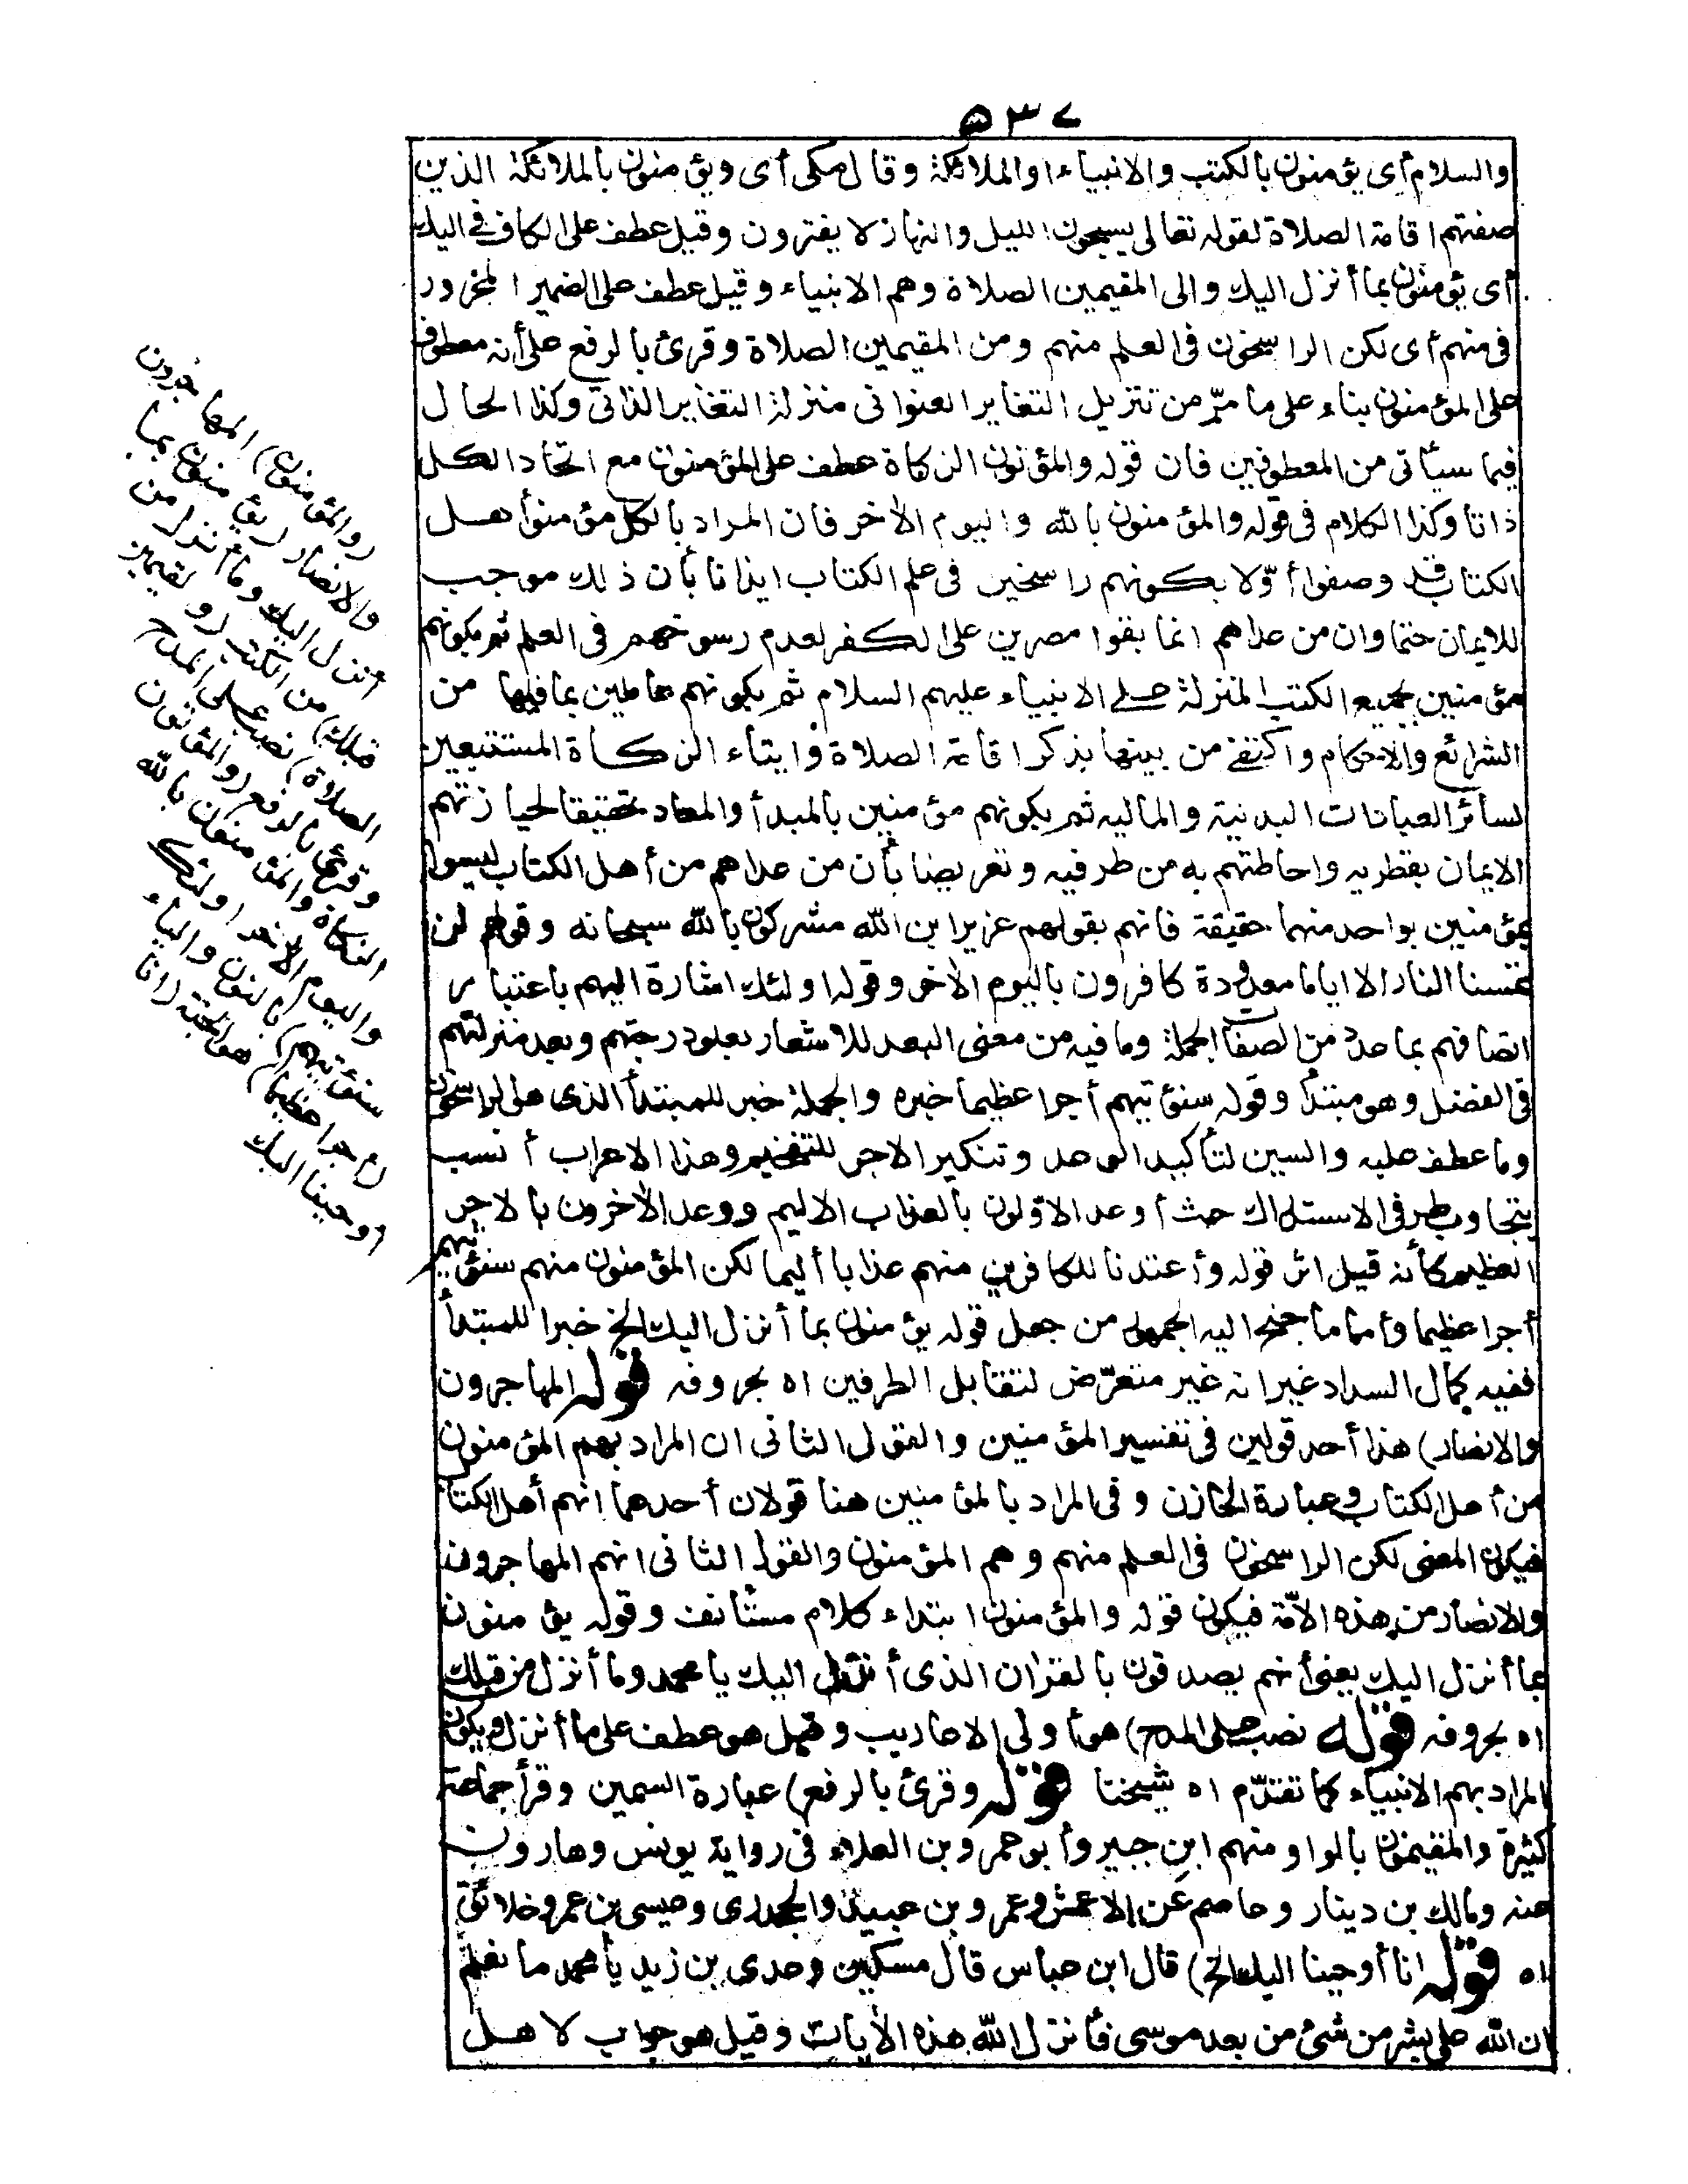 ٥٣٧
والسلام أى يؤمنون بالكتب والانبياء او الملائكة وقال مكى أى ويؤمنون بالملائكة الذين
صفتهم اقامة الصلاة لقوله تعالى يسبحون الليل والنهار لا يفترون وقيل عطف على الكاف فى اليك
أى يؤمنون بما أنزل اليك والى المقيمين الصلاة وهم الانبياء وقيل عطف على الضمير المجرور
فى منهم أى لكن الراسخون فى العلم منهم ومن المقيمين الصلاة وقرئ بالرفع على أنه معطوف
على المؤمنون بناء على ما مرّ من تنزيل التغاير العنوانى منزلة التغاير الذاتى وكذا الحال
فيما سيأتى من المعطوفين فان قوله والمؤتون الزكاة عطف على المؤمنون مع اتحاد الكل
ذاتا وكذا الكلام فى قوله والمؤمنون بالله واليوم الآخر فان المراد بالكل مؤمنوأهل
الكتاب قد وصفوا أوّلا بكونهم راسخين فى علم الكتاب ايذانا بأن ذلك موجب
للايمان حتما وان من عداهم انما بقوا مصرين على الكفر لعدم رسوخهم فى العلم ثم بكونهم
مؤمنين بجميع الكتب المنزلة على الانبياء عليهم السلام ثم بكونهم عاملين بما فيها من
الشرائع والاحكام واكتفى من بينها بذكر اقامة الصلاة وايتاء الزكاة المستتبعين
لسائر العبادات البدنية والماليه ثم بكونهم مؤمنين بالمبدأ والمعاد تحقيقا لحيازتهم
الايمان بقطريه واحاطتهم به من طرفيه وتعريضا بأن من عداهم من أهل الكتاب ليسوا
بمؤمنين بواحد منهما حقيقة فانهم بقولهم عزير ابن الله مشركون بالله سبحانه وقولهم لن
تمسنا النار الا اياما معدودة كافرون باليوم الآخر وقوله اولئك اشارة اليهم باعتبار
اتصافهم بما عدد من الصفات الجملة وما فيه من معنى البعد للاشعار بعلو درجتهم وبعد منزلتهم
فى الفضل وهو مبتدأ وقوله سنؤتيهم أجرا عظيما خبره والجملة خبر للمبتدأ الذى هو الراسخون
وما عطف عليه والسين لتأكيد الوعد وتنكير الاجر للتفخيم وهذا الاعراب أنسب
بتجاوب طرفى الاستدراك حيث أوعد الاولون بالعذاب الاليم ووعد الآخرون بالاجر
العظيم كأنه قيل اثر قوله وأعتدنا للكافرين منهم عذابا أليما لكن المؤمنون منهم سنؤتيهم
أجرا عظيما وأما ما جنح اليه الجمهور من جعل قوله يؤمنون بما أنزل اليك الخ خبرا للمبتدأ
ففيه كمال السداد غير انه غير متعرّض لتقابل الطرفين اه بحروفه قوله المهاجرون
والانصار) هذا أحد قولين فى تفسير المؤمنين والقول الثانى ان المراد بهم المؤمنون
من أهل الكتاب وعبارة الخازن وفى المراد بالمؤمنين هنا قولان أحدهما انهم أهل الكتاب
فيكون المعنى لكن الراسخون فى العلم منهم وهم المؤمنون والقول الثانى انهم المهاجرون
والانصار من هذه الامّة فيكون قوله والمؤمنون ابتداء كلام مستأنف وقوله يؤمنون
بما أنزل اليك يعنى أنهم يصدقون بالقرآن الذى أنزل اليك يا محمد وما أنزل من قبلك
اه بحروفه قوله نصب على المدح) هو أولى الاعاريب وقيل هو عطف على ما أنزل ويكون
المراد بهم الانبياء كما تقدّم اه شيخنا قوله وقرئ بالرفع) عبارة السمين وقرأ جماعة
كثيرة والمقيمون بالواو منهم ابن جبير وأبو عمرو بن العلاء فى رواية يونس وهارون
عنه ومالك بن دينار وعاصم عن الاعمش وعمرو بن عبيد والجحدرى وعيسى بن عمر وخلائق
اه قوله انا أوحينا اليك الخ) قال ابن عباس قال مسكين وعدى بن زيد يا محمد ما نعلم
ان الله على بشر من شئ من بعد موسى فأنزل الله هذه الآيات وقيل هو جواب لاهل
(والمؤمنون) المهاجرون
والانصار (يؤمنون بما
أنزل اليك وما أنزل من
قبلك) من الكتب (والمقيمين
الصلاة) نصب على المدح
وقرئ بالرفع (والمؤتون
الزكاة والمؤمنون بالله
واليوم الآخر اولئك
سنؤتيهم) بالنون والياء
(أجرا عظيما) هو الجنة (انا
أوحينا اليك